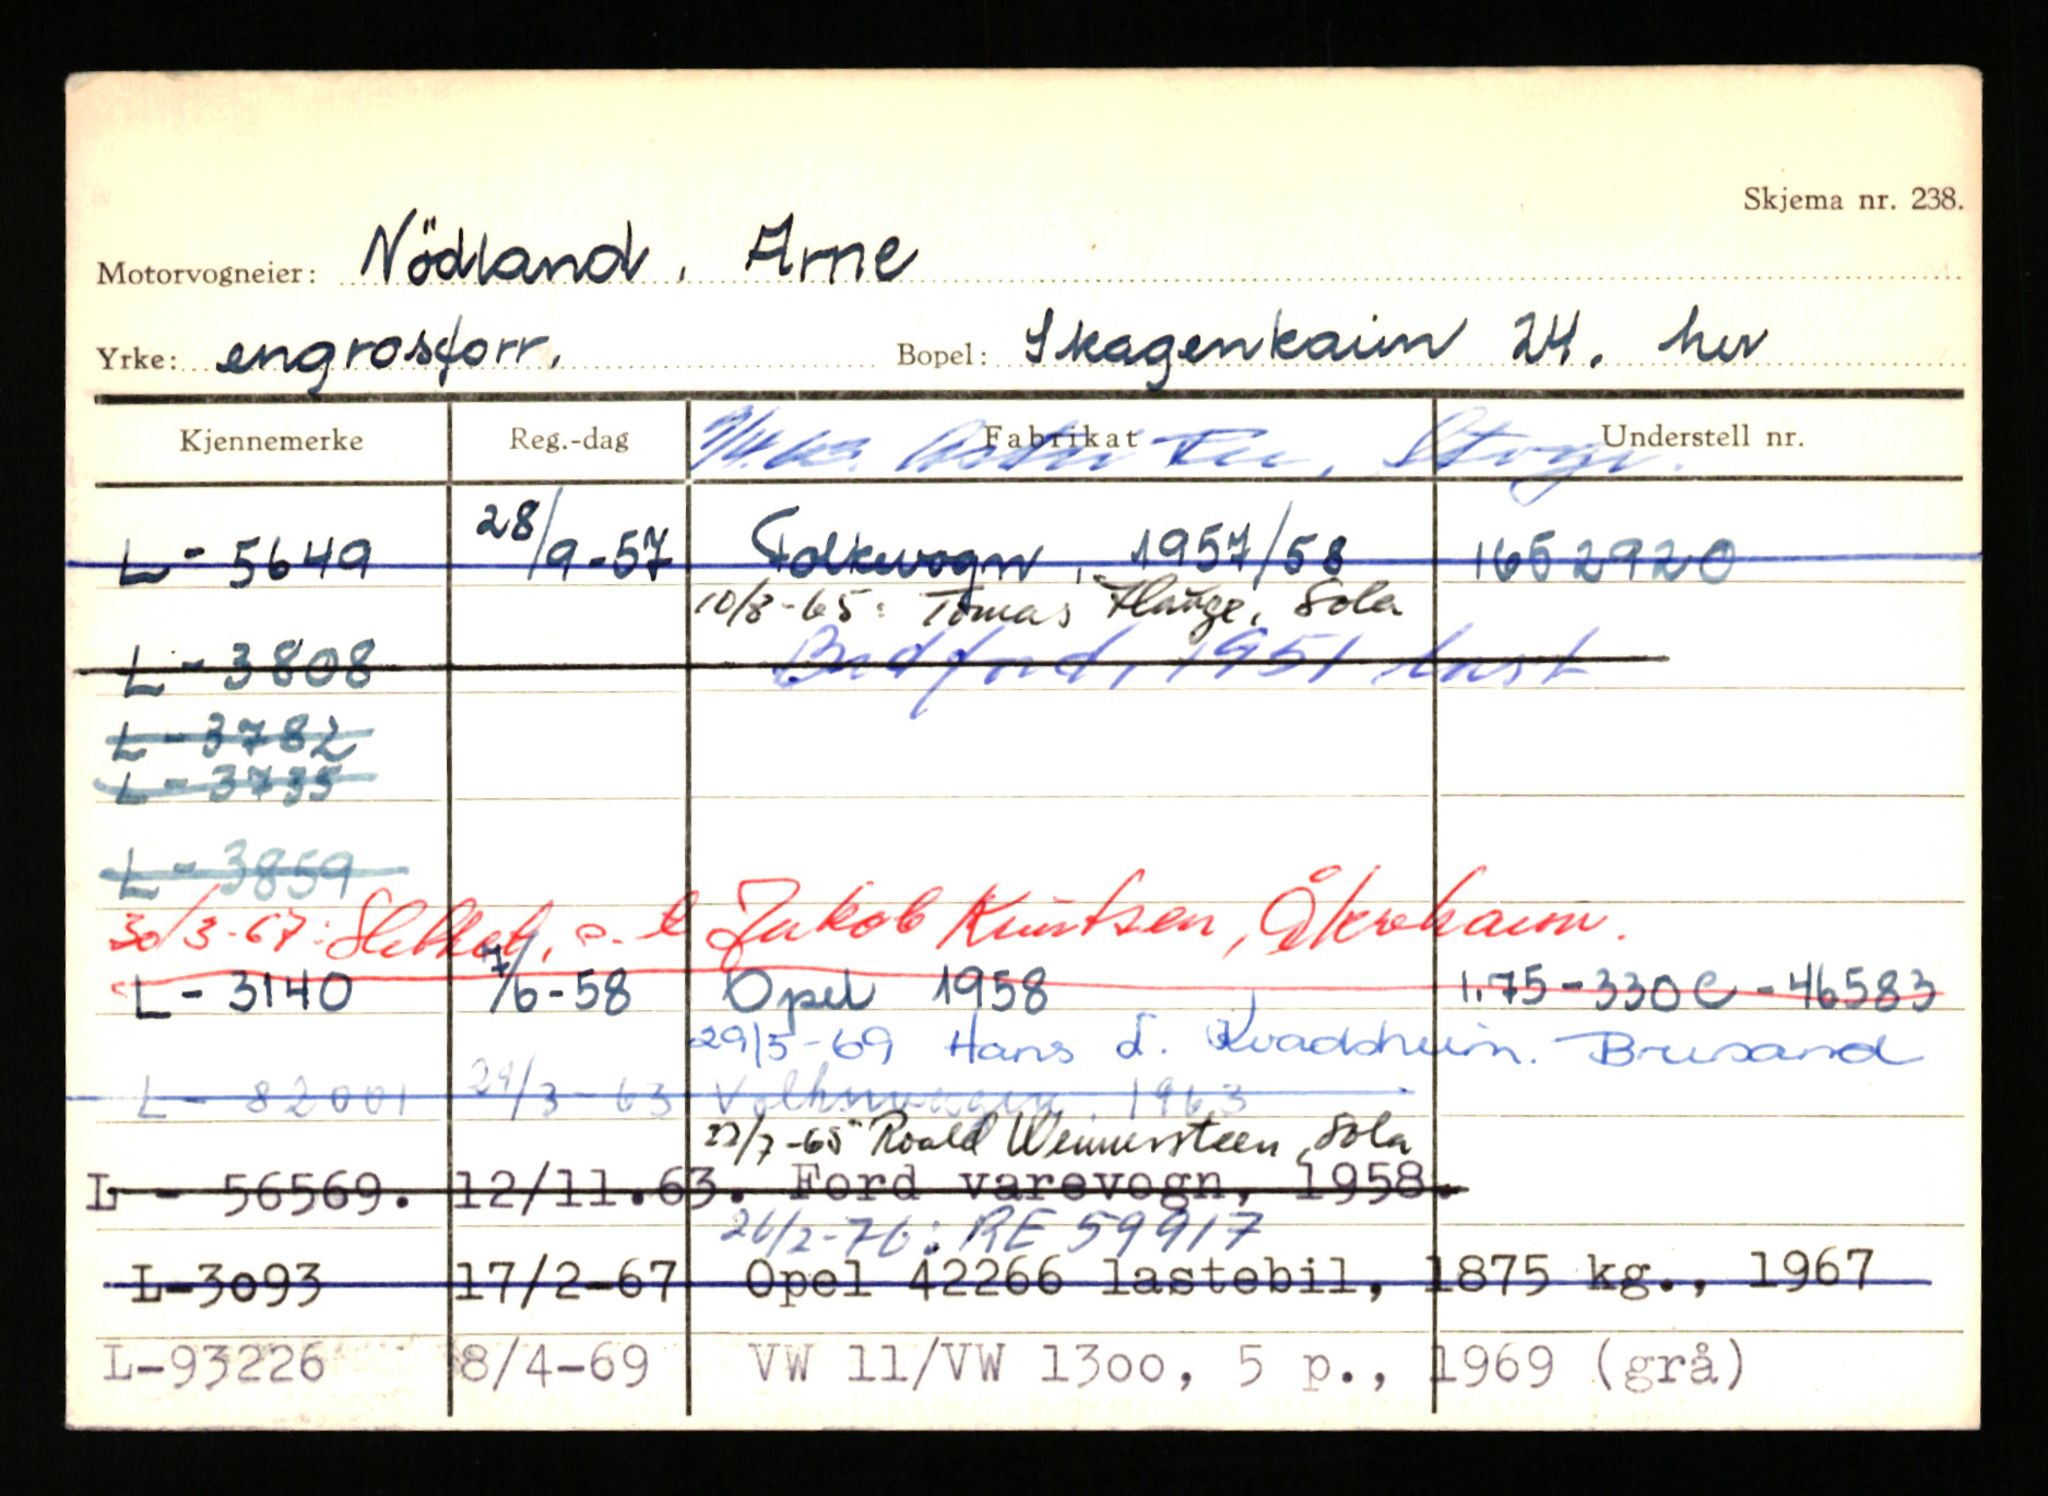 Skjema nr. 238.
Motorvogneier: Nödland, Arne
Yrke: engrosforr. Bopel: Skagenkaien 24. her
Kjennemerke Reg.-dag Fabrikat Understell nr.
L - 5649 28/9-57 Folkevogn, 1957/58 1652920
10/8-65: Tomas Hauge, Sola
L - 3808 Bedford, 1951 last
L - 3782
L - 3735
L - 3859
30/3-67: Slettet, Jakob Knutsen, Åkrehamn.
L - 3140 7/6-58 Opel 1958 1.75-330C-46583
29/5-69 Hans Kvadsheim. Brusand
L - 82001 29/3-63 Volkswagen, 1963
22/7-65 Roald Wennersteen, Sola
L - 56569. 12/11.63. Ford varevogn, 1958.
26/2-76: RE 59917
L-3093 17/2-67 Opel 42266 lastebil, 1875 kg., 1967
L-93226 8/4-69 VW 11/VW 1300, 5 p., 1969 (grå)